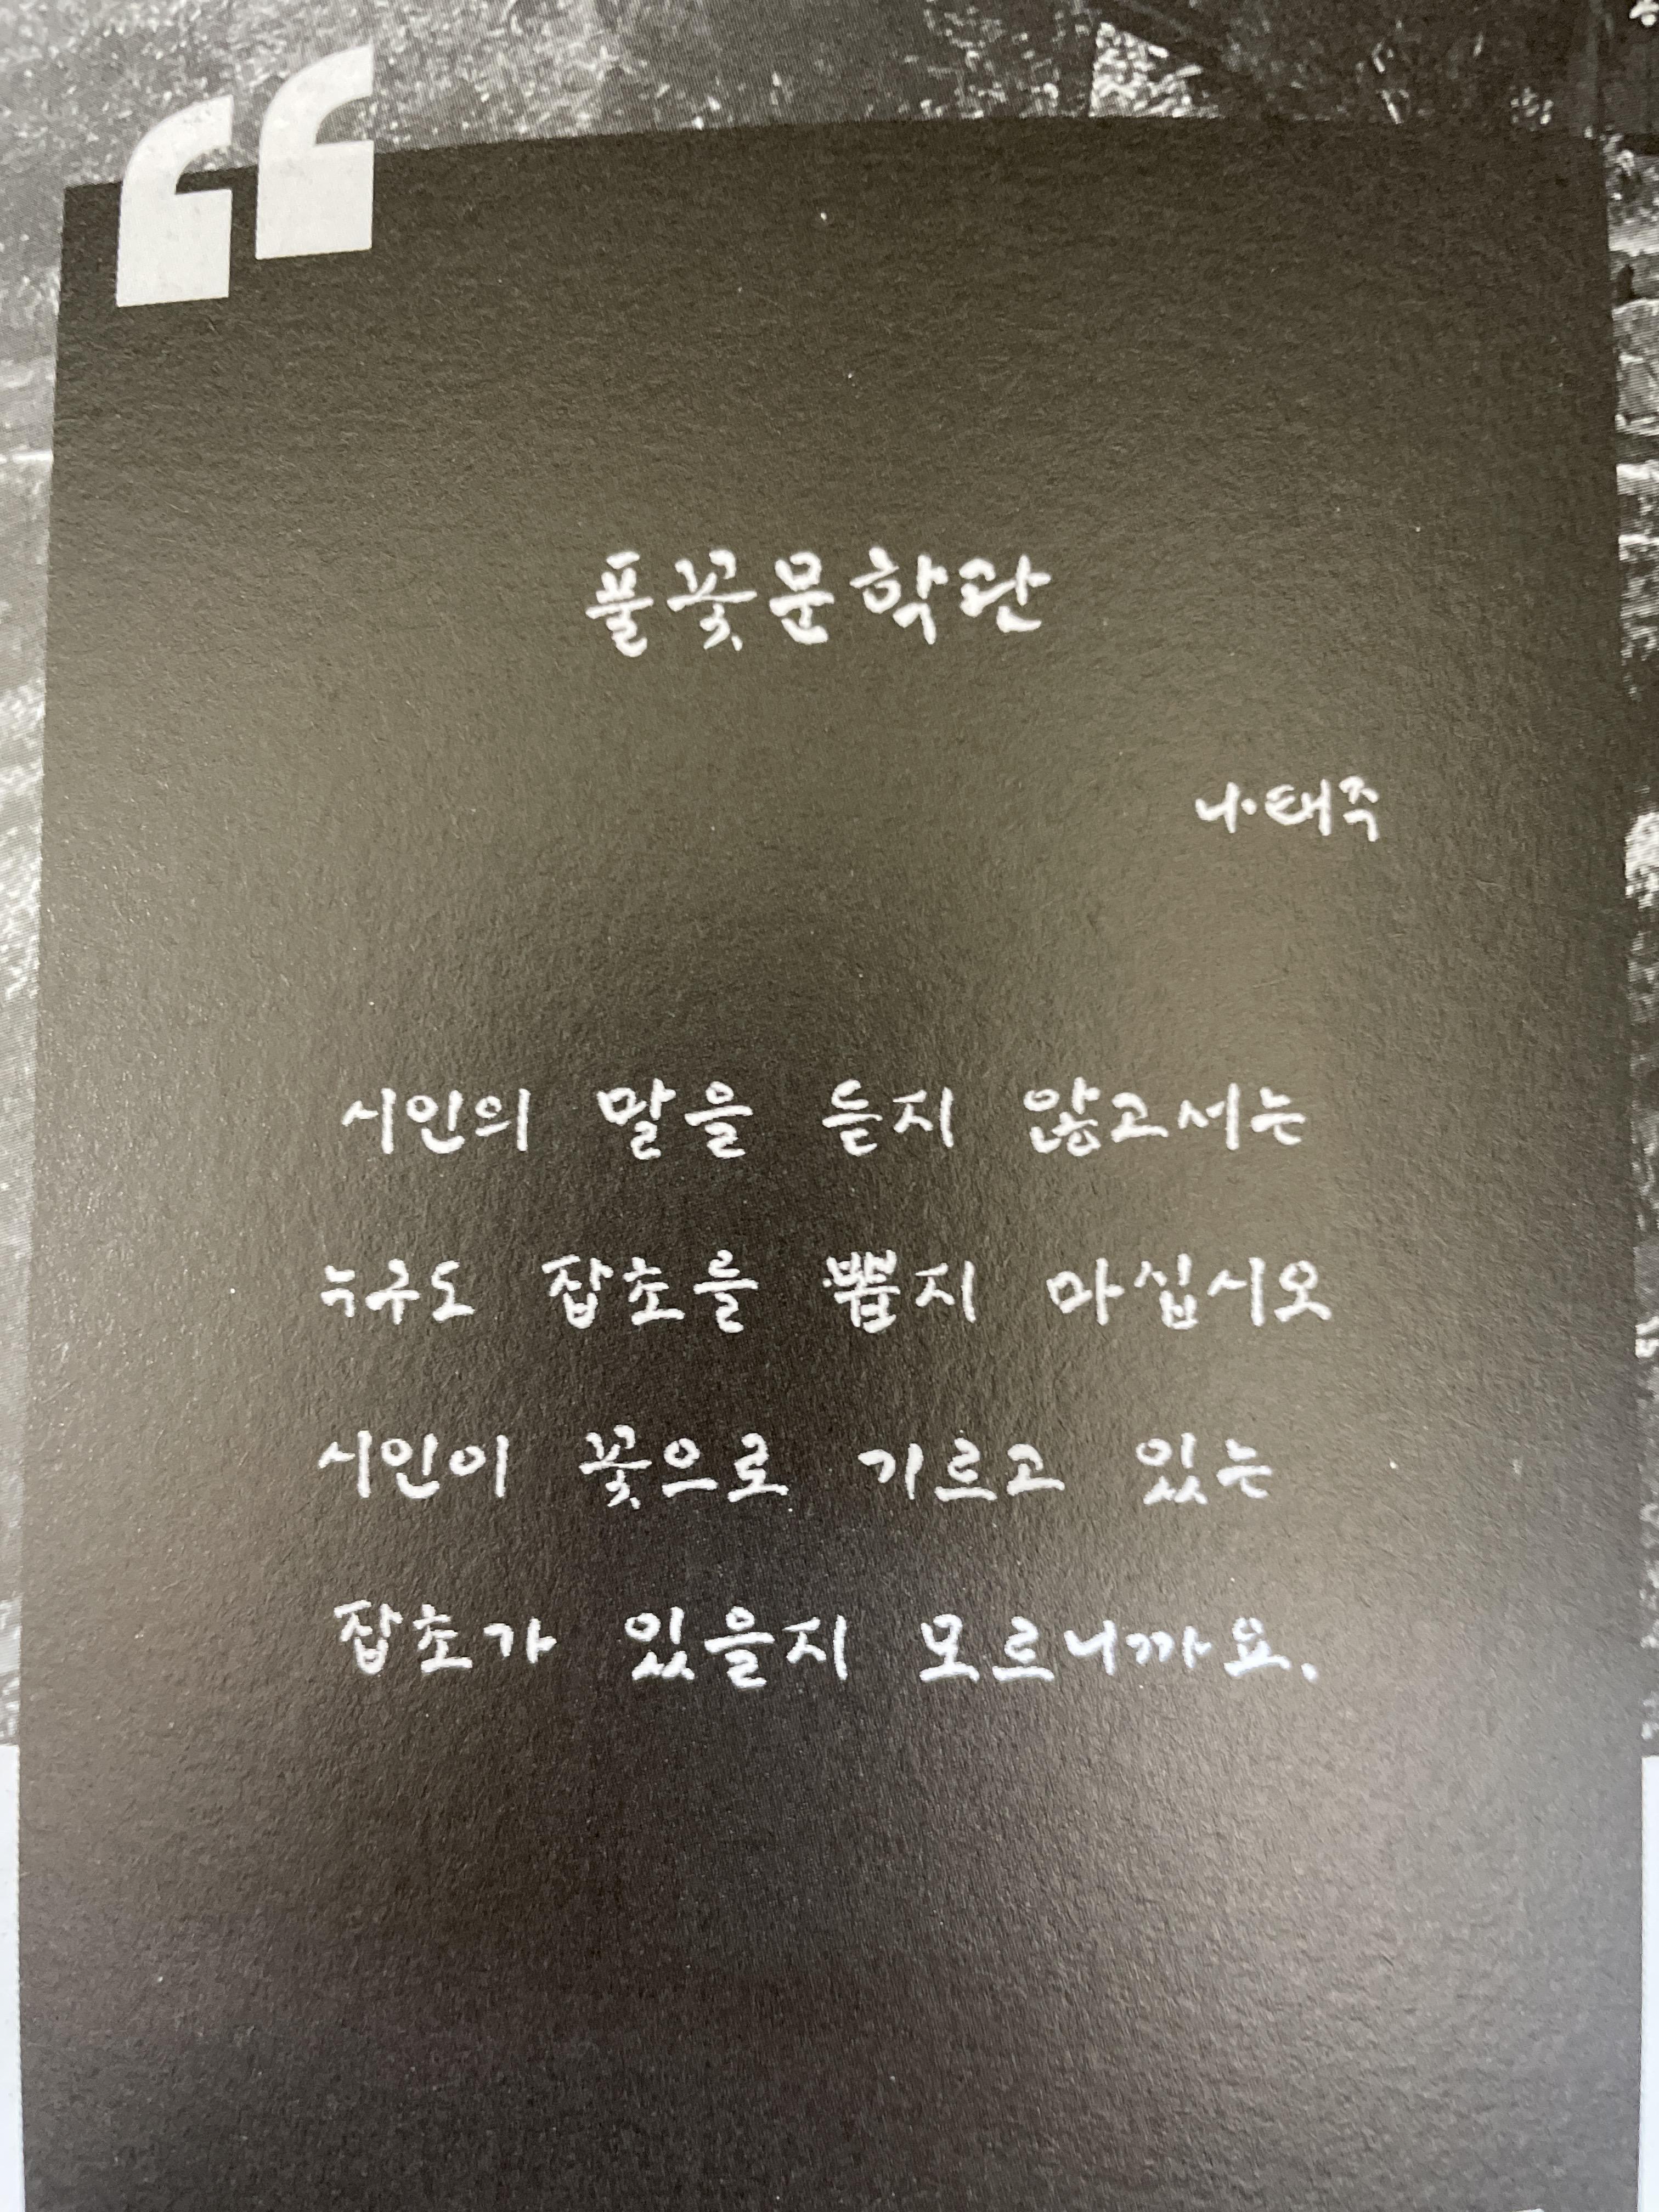 “
풀꽃문학관
나태주
시인의 말을 듣지 않고서는
누구도 잡초를 뽑지 마십시오
시인이 꽃으로 기르고 있는
잡초가 있을지 모르니까요.